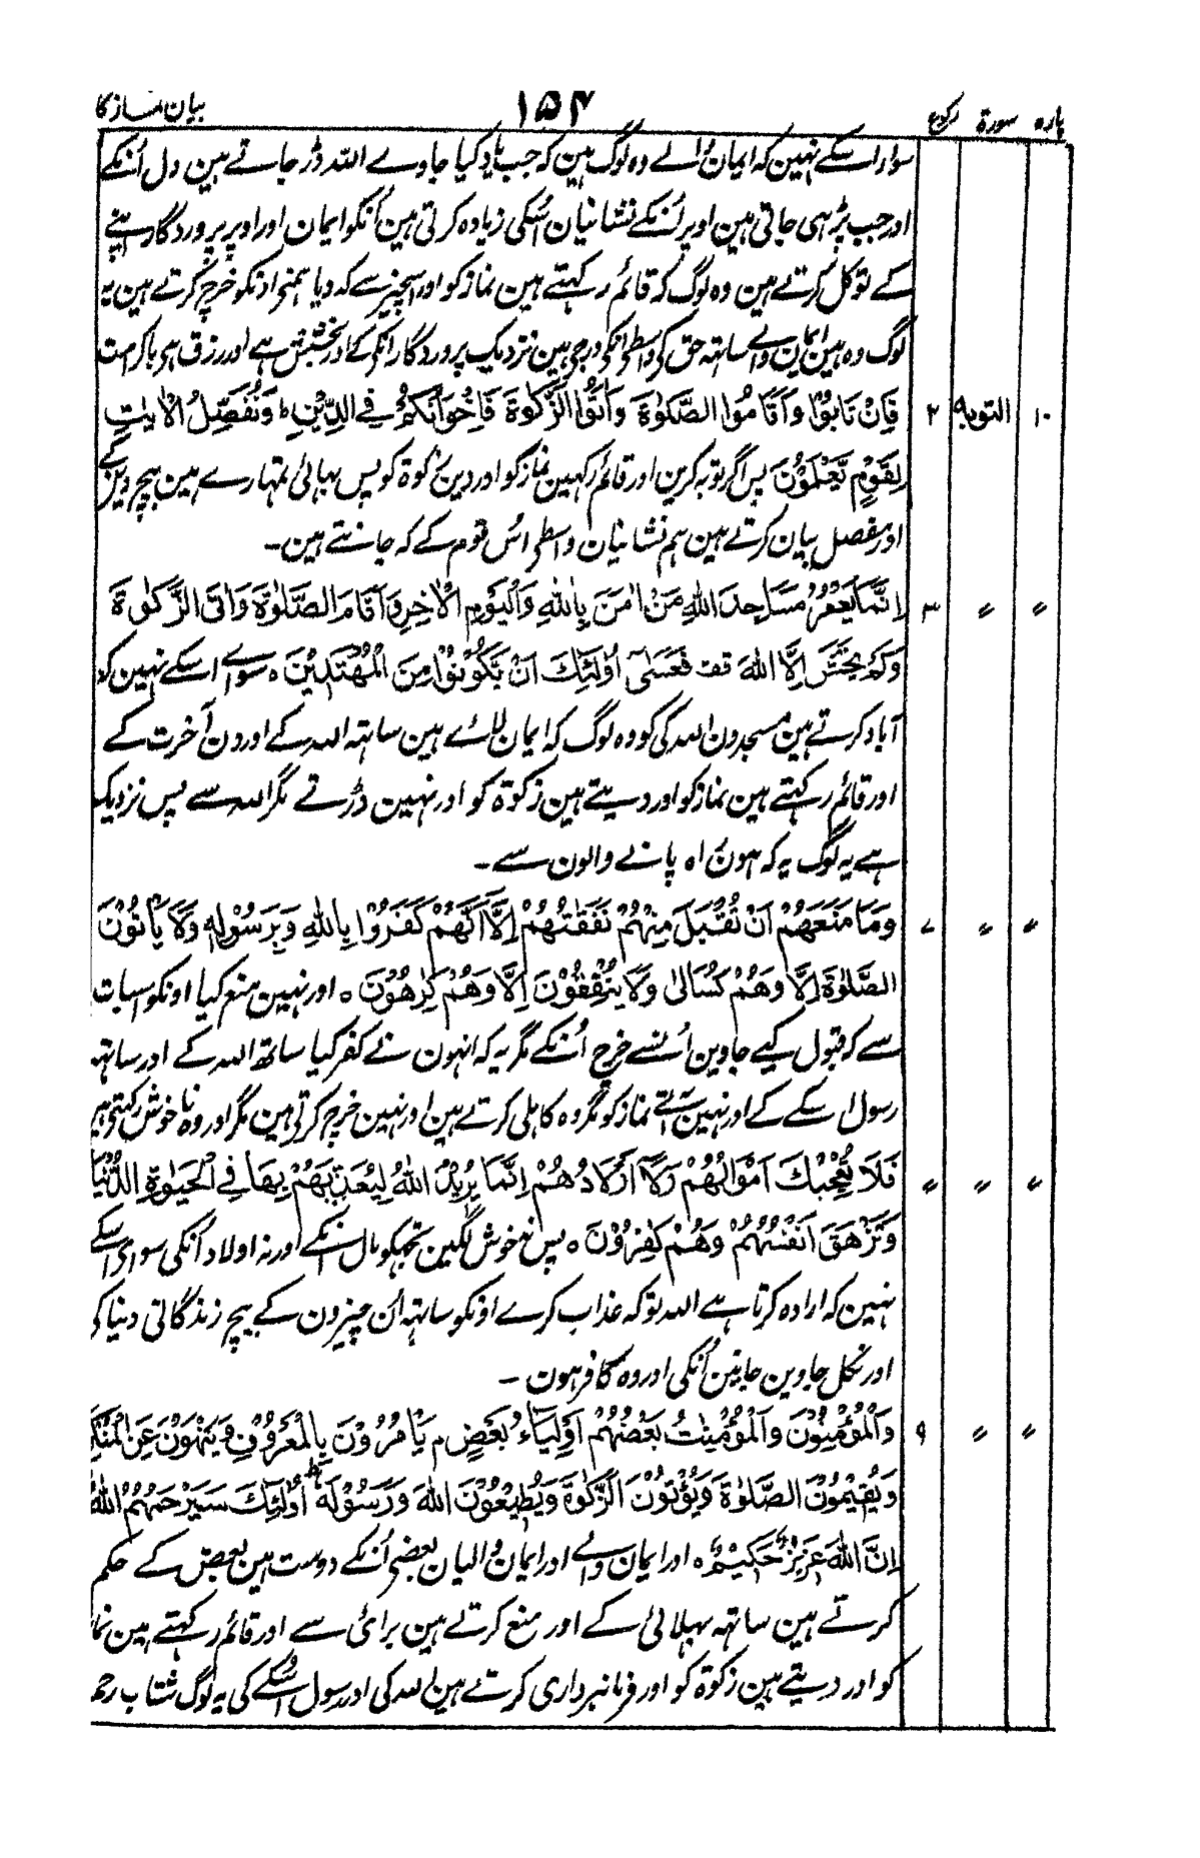 پارہ سورۃ رکوع ۱۵۴ بیان نماز کا
سوا اسکے نہین کہ ایمان والے وہ لوگ ہین کہ جب یاد کیا جاوے اللہ ڈر جاتے ہین دل اُنکے
اور جب پڑہی جاتی ہین اوپر اُنکے نشانیان اُسکی زیادہ کرتی ہین اُنکو ایمان اور اوپر پروردگار اپنے
کے توکل کرتے ہین وہ لوگ کہ قائم رکہتے ہین نماز کو اور اسچیز سے کہ دیا ہمنے اونکو خرچ کرتے ہین یہ
لوگ وہ ہین ایمان والے ساتہہ حق کے واسطے اُنکے درجے ہین نزدیک پروردگار اُنکے کے اور بخشش ہے اور رزق ہی باکرامت
۱۰ التوبہ ۲ فَاِنْ تَابُوْا وَاَقَامُوا الصَّلٰوۃَ وَاٰتَوُا الزَّكٰوۃَ فَاِخْوَانُكُمْ فِي الدِّيْنِ ط وَنُفَصِّلُ الْاٰيٰتِ
لِقَوْمٍ يَّعْلَمُوْنَ پس اگر توبہ کرین اور قائم رکہین نماز کو اور دین زکوۃ کو پس بہائی تمہارے ہین بیچ دین کے
اور مفصل بیان کرتے ہین ہم نشانیان واسطے اُس قوم کے کہ جانتے ہین۔
〃 〃 ۳ اِنَّمَا يَعْمُرُ مَسٰجِدَ اللّٰهِ مَنْ اٰمَنَ بِاللّٰهِ وَالْيَوْمِ الْاٰخِرِ وَاَقَامَ الصَّلٰوۃَ وَاٰتَى الزَّكٰوۃَ
وَلَمْ يَخْشَ اِلَّا اللّٰهَ قف فَعَسٰٓى اُولٰٓئِكَ اَنْ يَّكُوْنُوْا مِنَ الْمُهْتَدِيْنَ ہ سواے اسکے نہین کہ
آباد کرتے ہین مسجدون اللہ کی کو وہ لوگ کہ ایمان لائے ہین ساتہہ اللہ کے اور دن آخرت کے
اور قائم رکہتے ہین نماز کو اور دیتے ہین زکوۃ کو اور نہین ڈرتے مگر اللہ سے پس نزدیک
ہے یہ لوگ یہ کہ ہون راہ پانے والون سے۔
〃 〃 ۷ وَمَا مَنَعَهُمْ اَنْ تُقْبَلَ مِنْهُمْ نَفَقٰتُهُمْ اِلَّا اَنَّهُمْ كَفَرُوْا بِاللّٰهِ وَبِرَسُوْلِهٖ وَلَا يَاْتُوْنَ
الصَّلٰوۃَ اِلَّا وَهُمْ كُسَالٰى وَلَا يُنْفِقُوْنَ اِلَّا وَهُمْ كٰرِهُوْنَ ہ اور نہین منع کیا اونکو اسبات
سے کہ قبول کیے جاوین اُنسے خرچ اُنکے مگر یہ کہ انہون نے کفر کیا ساتھ اللہ کے اور ساتہہ
رسول اسکے کے اور نہین آتے نماز کو مگر وہ کاہلی کرتے ہین اور نہین خرچ کرتی ہین مگر اور وہ ناخوش رکہتے ہین
〃 〃 〃 فَلَا تُعْجِبْكَ اَمْوَالُهُمْ وَلَآ اَوْلَادُهُمْ اِنَّمَا يُرِيْدُ اللّٰهُ لِيُعَذِّبَهُمْ بِهَا فِي الْحَيٰوۃِ الدُّنْيَا
وَتَزْهَقَ اَنْفُسُهُمْ وَهُمْ كٰفِرُوْنَ ہ پس نہ خوش لگین تجہکو مال اُنکے اور نہ اولاد اُنکی سواے اسکے
نہین کہ ارادہ کرتا ہے اللہ تو کہ عذاب کرے اونکو ساتہہ اُن چیزون کے بیچ زندگانی دنیا کی
اور نکل جاوین جانین اُنکی اور وہ کافر ہون۔
〃 〃 ۹ وَالْمُؤْمِنُوْنَ وَالْمُؤْمِنٰتُ بَعْضُهُمْ اَوْلِيَآءُ بَعْضٍ م يَاْمُرُوْنَ بِالْمَعْرُوْفِ وَيَنْهَوْنَ عَنِ الْمُنْكَرِ
وَيُقِيْمُوْنَ الصَّلٰوۃَ وَيُؤْتُوْنَ الزَّكٰوۃَ وَيُطِيْعُوْنَ اللّٰهَ وَرَسُوْلَهٗ ط اُولٰٓئِكَ سَيَرْحَمُهُمُ اللّٰهُ
اِنَّ اللّٰهَ عَزِيْزٌ حَكِيْمٌ ہ اور ایمان والے اور ایمان والیان بعضے اُنکے دوست ہین بعض کے حکم
کرتے ہین ساتہہ بہلائی کے اور منع کرتے ہین برائی سے اور قائم رکہتے ہین نماز
کو اور دیتے ہین زکوۃ کو اور فرمانبرداری کرتے ہین اللہ کی اور رسول اُسکے کی یہ لوگ شتاب رحم